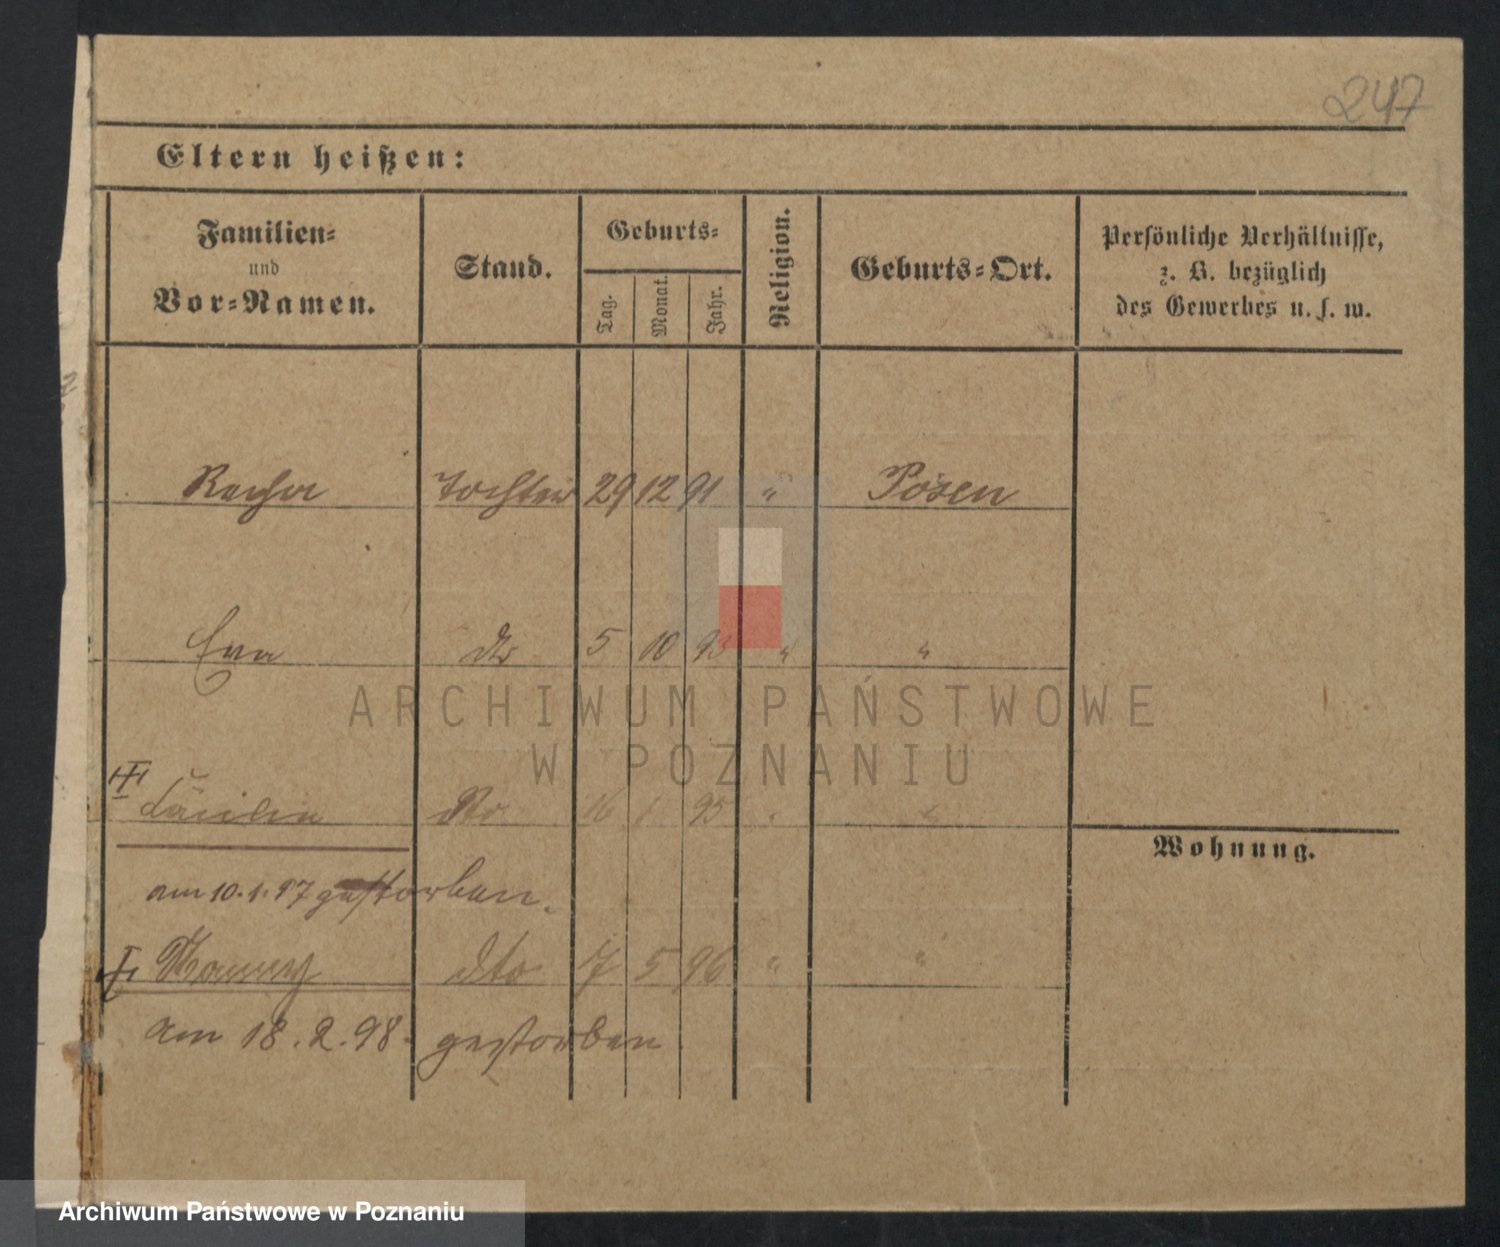 247
Eltern heißen:
Familien-
und
Vor-Namen.
Stand.
Geburts-
Tag.
Monat.
Jahr.
Religion.
Geburts-Ort.
Persönliche Verhältnisse,
z. B. bezüglich
des Gewerbes u. s. w.
Recha Tochter 29 12 91 " Posen
Eva dto 5 10 93 " "
Cäcilie dto 16 1 95 " "
Wohnung.
am 10.1.97 gestorben.
dto 7 5 96 " "
am 18.2.98. gestorben.
ARCHIWUM PAŃSTWOWE
W POZNANIU
Archiwum Państwowe w Poznaniu